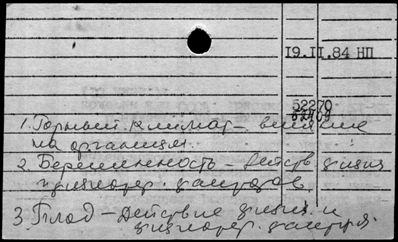 19.II.84 НП
52270
1. Горный климат – влияние
на организм.
2. Беременность – Действ физич
и физиотер. факторов
3. Плод – Действие физич. и
физиотер. фактор.